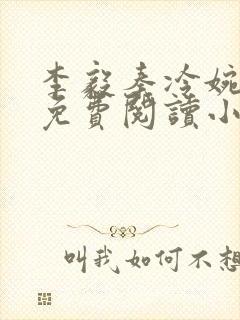 李毅秦冷婉
免費閱讀小
叫我如何不想